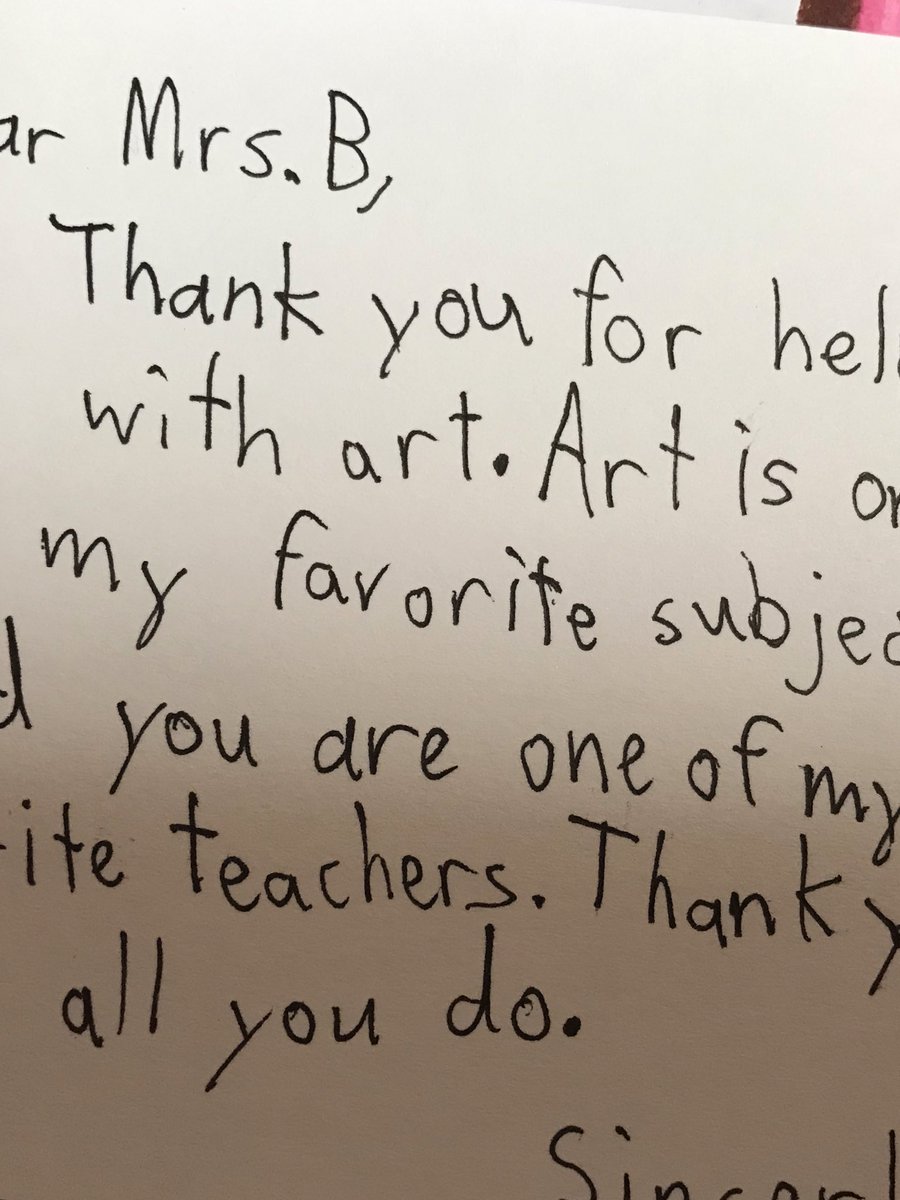 ar Mrs. B,
Thank you for hel
with art. Art is on
my favorite subjec
d you are one of my
ite teachers. Thank y
all you do.
Sincerl